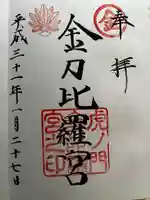 奉拝
金
金刀比羅宮
虎ノ門
平成三十一年一月二十七日